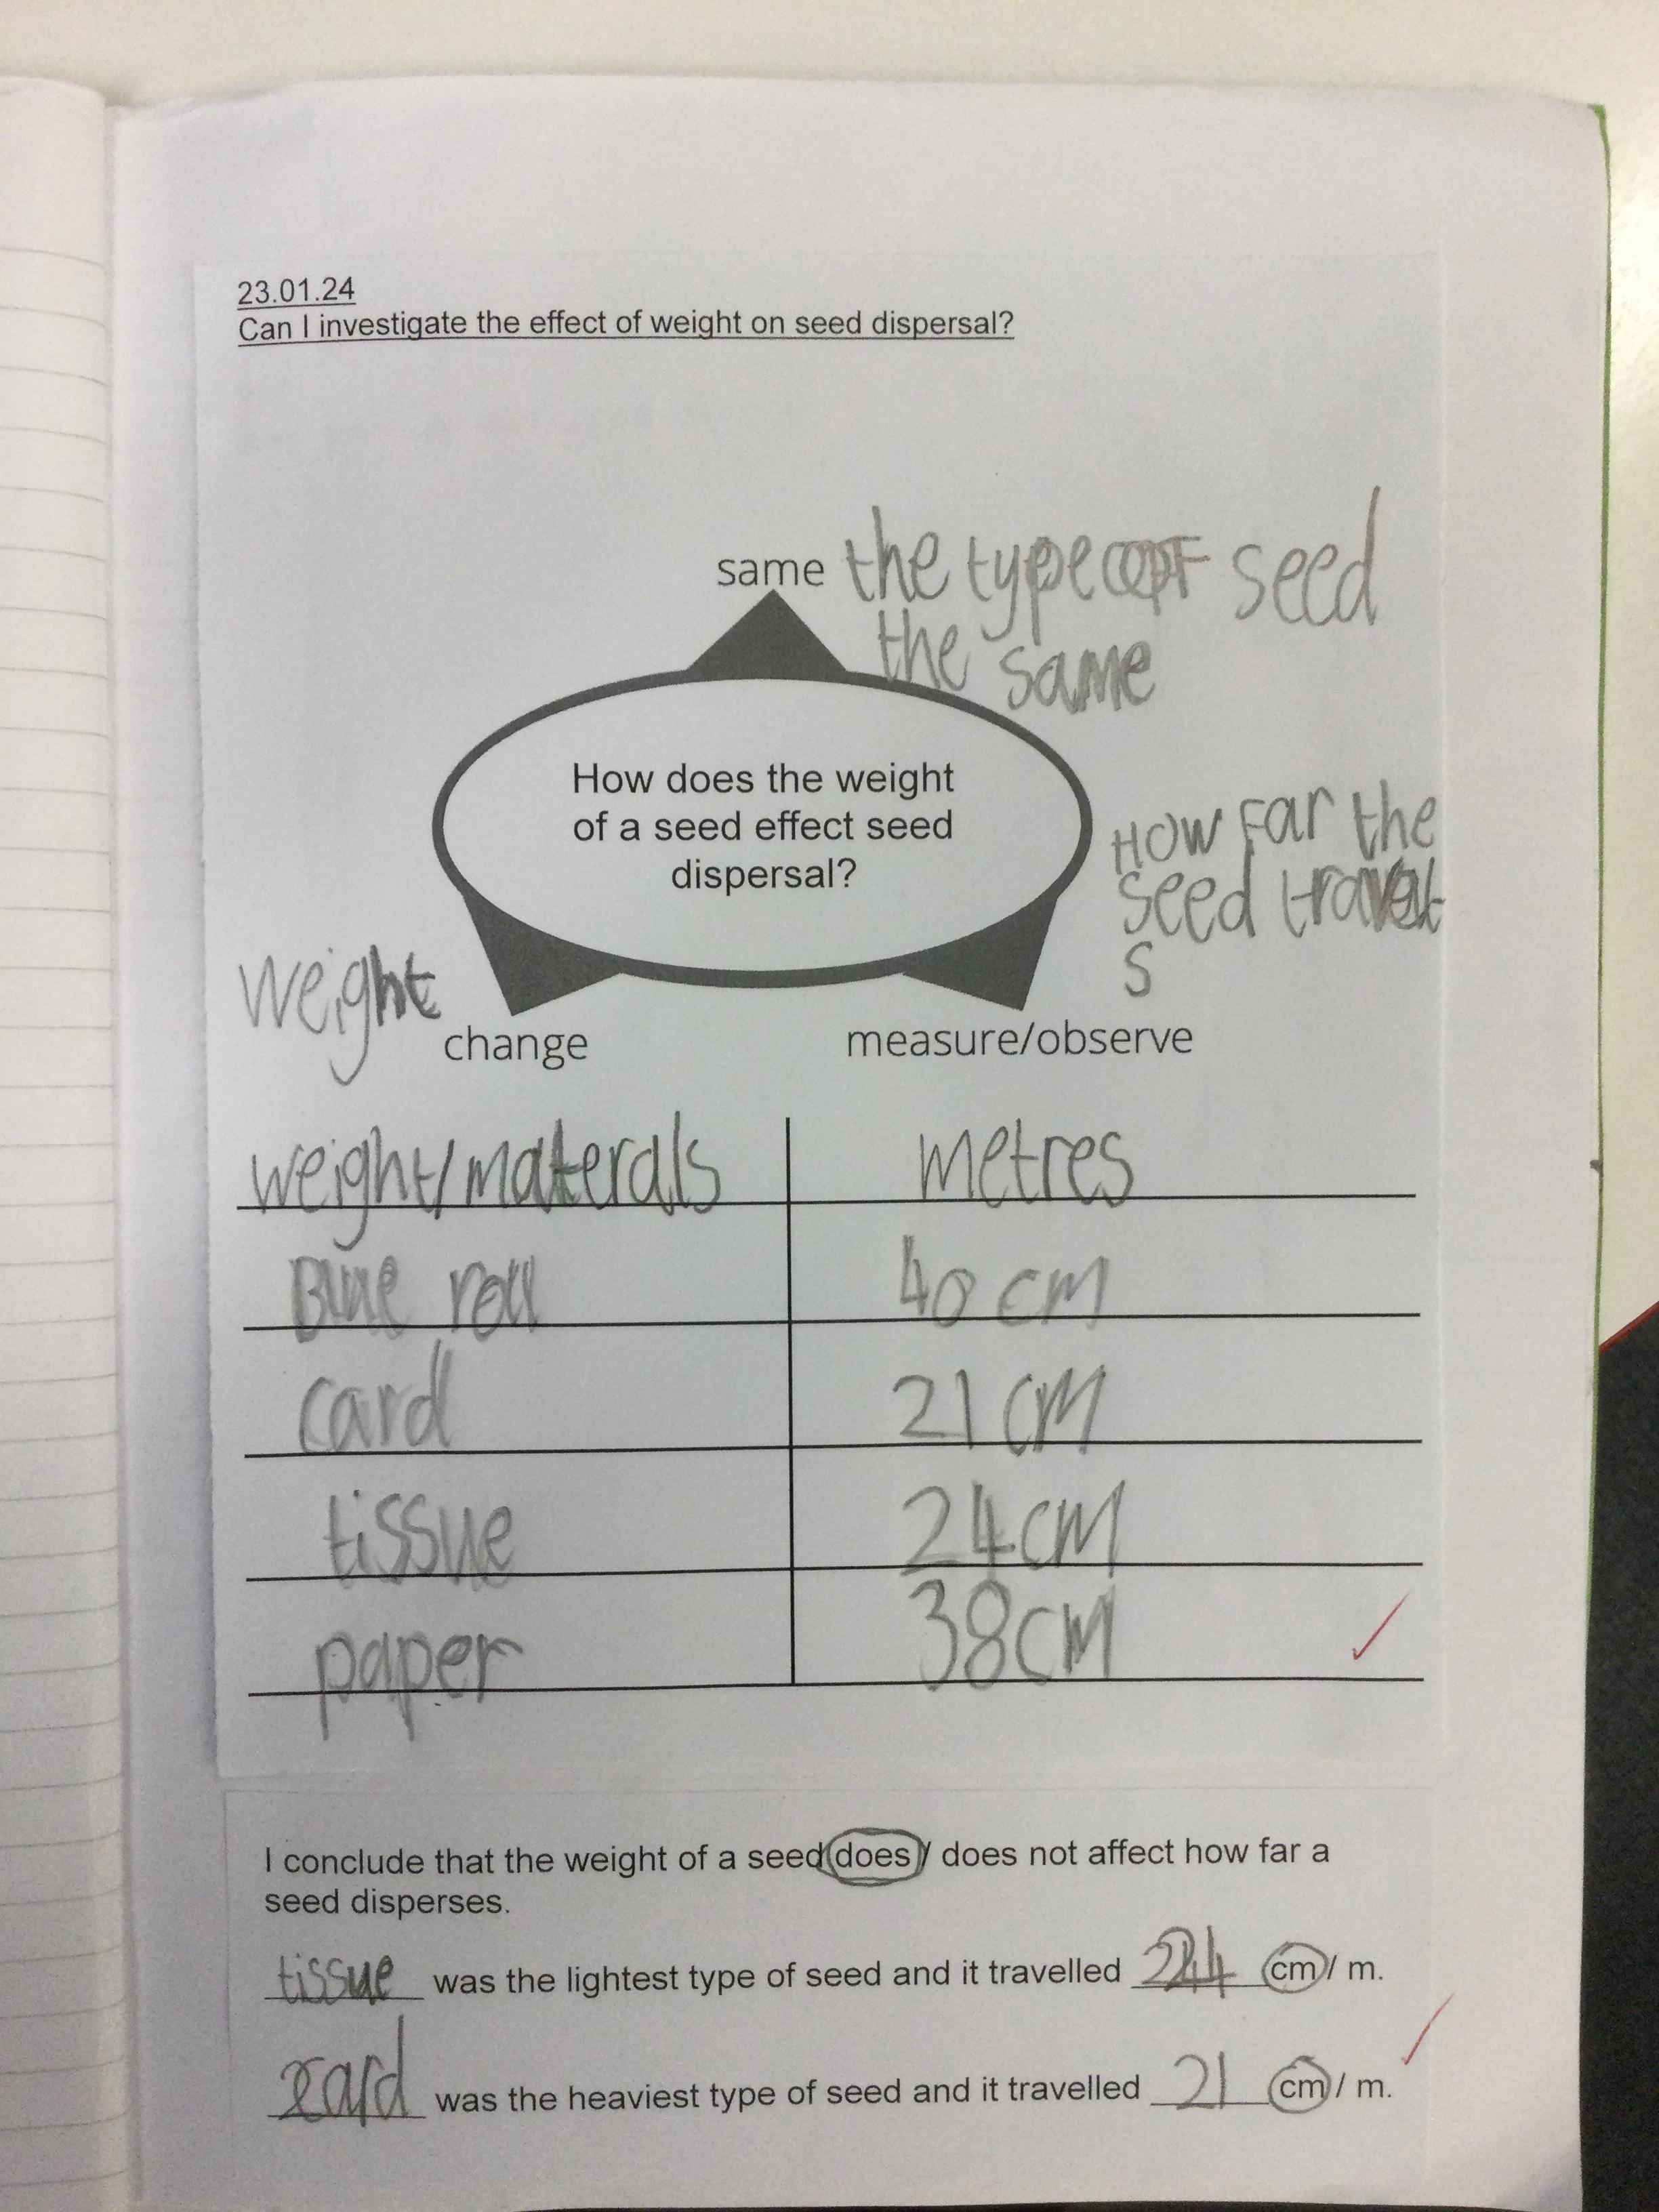 23.01.24
Can I investigate the effect of weight on seed dispersal?
same the type OF seed
the same
How does the weight
of a seed effect seed
dispersal?
How Far the
seed travel
s
weight
change
measure/observe
weight/materals metres
Blue roll 40 cm
card 21 cm
tissue 24 cm
paper 38 cm
I conclude that the weight of a seed does / does not affect how far a
seed disperses.
tissue was the lightest type of seed and it travelled 24 cm / m.
card was the heaviest type of seed and it travelled 21 cm / m.